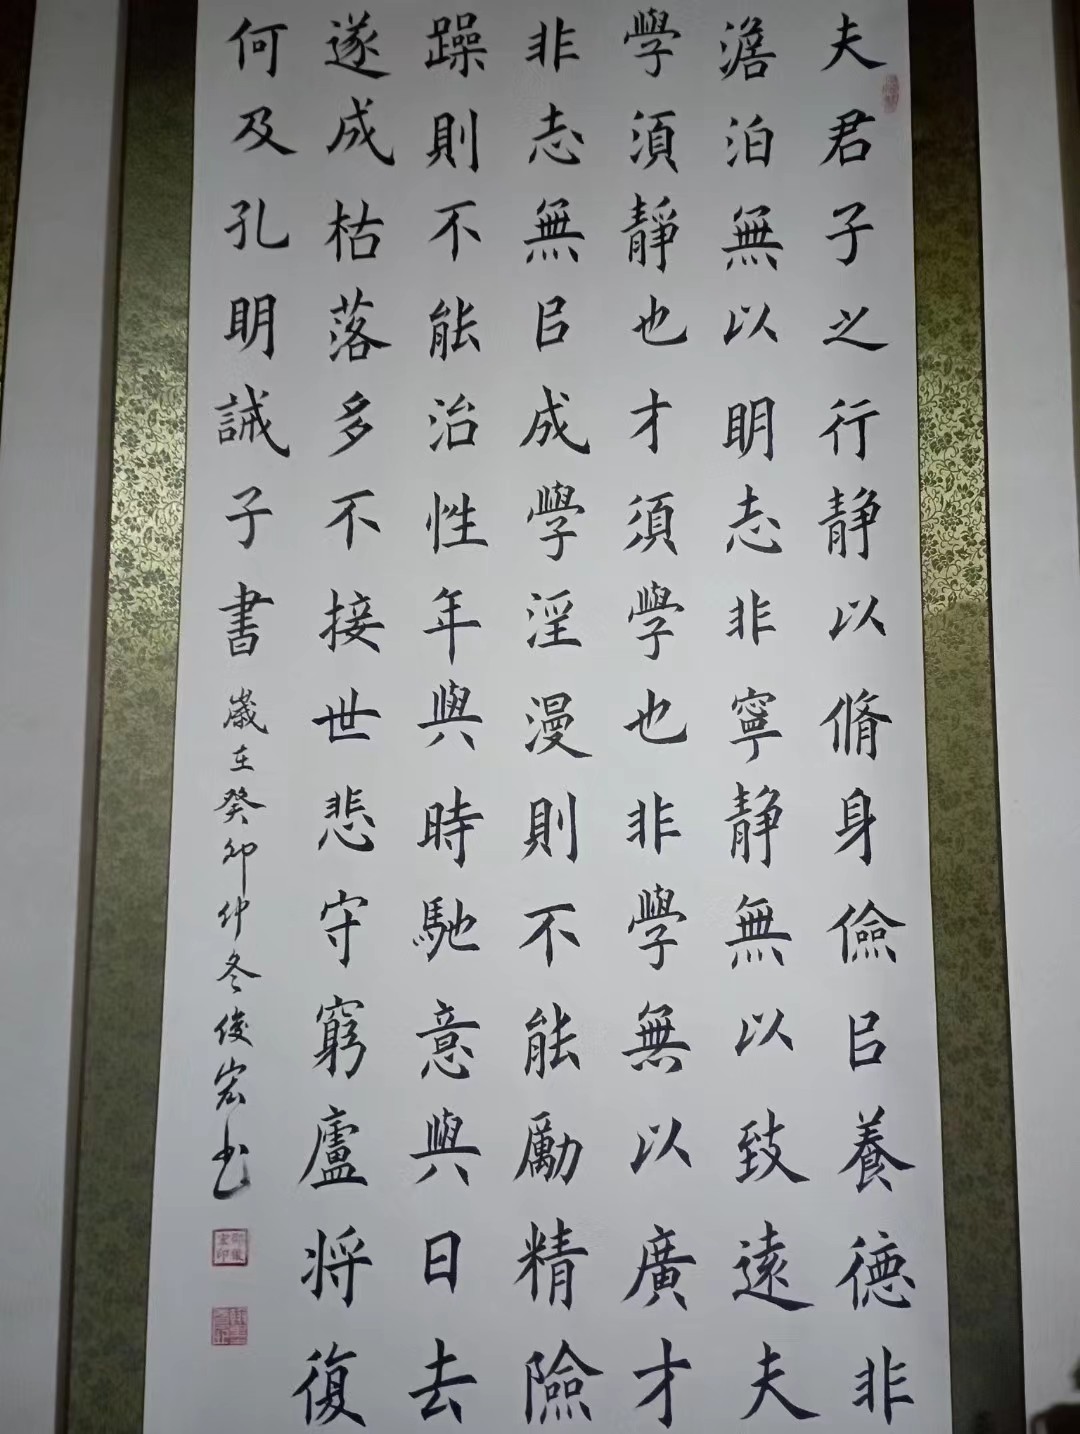 夫君子之行静以脩身儉㠯養德非
澹泊無以明志非寧静無以致遠夫
學須靜也才須學也非學無以廣才
非志無㠯成學淫漫則不能勵精險
躁則不能治性年與時馳意與日去
遂成枯落多不接世悲守窮廬将復
何及孔明誡子書歲在癸卯仲冬俊宏书